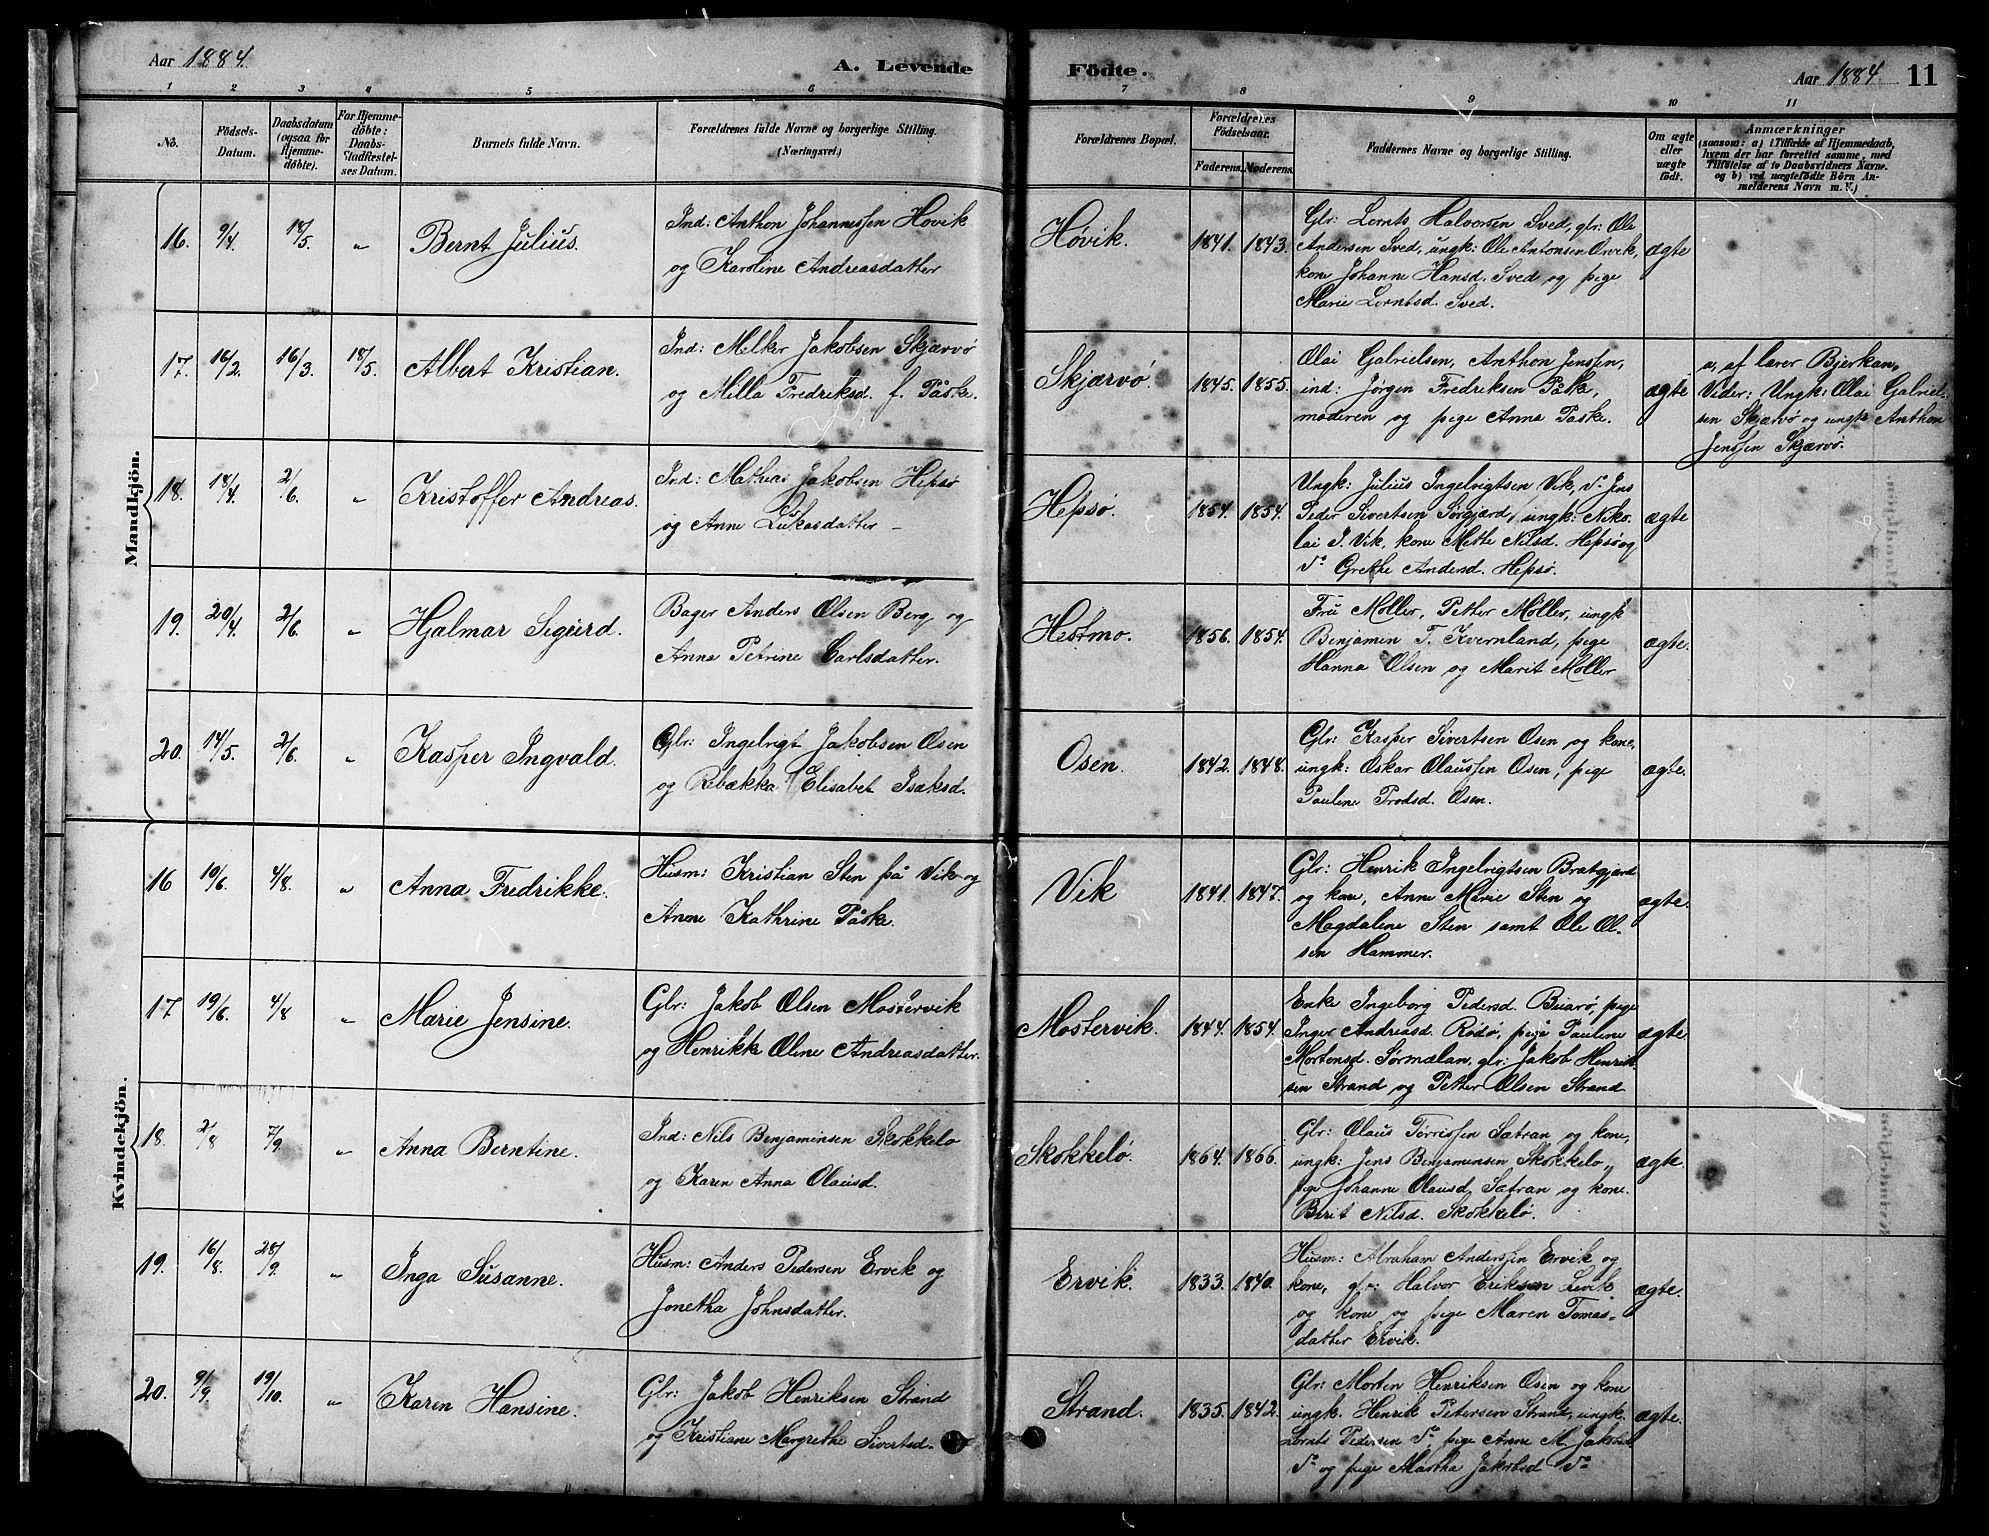 Aar 1884. A. Levende Födte. Aar 1884 11
1 2 3 4 5 6 7 8 9 10 11
No.
Födsels-
Datum.
Daabsdatum
(ogsaa for
Hjemme-
döbte).
For Hjemme-
döbte:
Daabs-
Stadfæstel-
ses Datum.
Barnets fulde Navn.
Forældrenes fulde Navne og borgerlige Stilling.
(Næringsvei.)
Forældrenes Bopæl.
Forældrenes
Födselsaar.
Faderens. Moderens.
Faddernes Navne og borgerlige Stilling.
Om ægte
eller
uægte
födt.
Anmærkninger
(saasom: a) i Tilfælde af Hjemmedaab,
hvem der har forrettet samme, med
Tilföielse af to Daabsvidners Navne.
og b) ved uægtefödte Börn An-
melderens Navn m. V.)
Mandkjön.
16. 9/4. 18/5. " Bernt Julius.
Ind: Anthon Johannessen Hovik
og Karoline Andreasdatter
Høvik. 1841. 1843.
Glr: Lornts Halvorsen Sved, glr: Ole
Andersen Sved, ungk: Ole Antonsen Ørvik,
kone Johanne Hansd. Sved og pige
Marie Lorntsd. Sved.
ægte
17. 16/2. 16/3. 18/5. Albert Kristian.
Ind: Milker Jakobsen Skjærvø
og Milla Fredriksd. f. Påske.
Skjærvø. 1845. 1855.
Olai Gabrielsen, Anthon Jenssen,
ind: Jørgen Fredriksen Påske,
moderen og pige Anna Påske.
ægte
a, af lærer Bjerkan,
Vidner: Ungk: Olai Gabriel-
sen Skjærvø og ungk Anthon
Jenssen Skjærvø.
18. 18/4. 2/6. " Kristoffer Andreas.
Ind: Mathias Jakobsen Hepsø
og Anne Lukasdatter –
Hepsø. 1854. 1854.
Ungk: Julius Ingelrigtsen Vik, do Jens
Peder Sivertsen Sørgjærd, ungk: Niko-
lai J. Vik, kone Mette Nilsd. Hepsø og
do Grethe Andersd. Hepsø.
ægte
19. 20/4. 2/6. " Hjalmar Sigurd.
Bager Anders Olsen Berg og
Anna Petrine Carlsdatter.
Hestmo. 1856. 1854.
Fru Møller, Petter Møller, ungk
Benjamin T. Kvernland, pige
Hanna Olsen og Marit Møller
ægte.
20. 14/5. 2/6. " Kasper Ingvald.
Glr: Ingelrigt Jakobsen Osen
og Rebækka Elisabet Isaksd.
Osen. 1842. 1848.
Glr: Kasper Sivertsen Osen og kone,
ungk: Oskar Olaussen Osen, pige
Pauline Trodsd. Osen.
ægte.
Kvindekjön.
16 10/6. 4/8. " Anna Fredrikke.
Husm: Kristian Sten på Vik og
Anne Kathrine Påske.
Vik 1841. 1847.
Glr: Henrik Ingelrigtsen Bratgjærd
og kone, Anne Marie Sten og
Magdalene Sten samt Ole Ol-
sen Hammer.
ægte.
17 19/6. 4/8 " Marie Jensine.
Glr: Jakob Olsen Mostervik
og Henrikke Oline Andreasdatter.
Mostervik. 1844. 1854.
Enke Ingeborg Pedersd. Buarø, pige
Inger Andreasd. Rødø, pige Pauline
Mortensd. Sørmælan, glr: Jakob Henrik-
sen Strand og Petter Olsen Strand
ægte.
18. 2/8 7/9. " Anna Berntine.
Ind: Nils Benjaminsen Skokkelø
og Karen Anna Olausd.
Skokkelø. 1864. 1866.
Glr: Olaus Torrissen Sætran og kone,
ungk: Jens Benjaminsen Skokkelø,
pige Johanne Olausd. Sætran og kone.
Berit Nilsd. Skokkelø.
ægte.
19. 16/8. 28/9. " Inga Susanne.
Husm: Anders Pedersen Ervik og
Jonetha Johnsdatter.
Ervik. 1833. 1840.
Husm: Abraham Anderssen Ervik og
kone, glr: Halvor Eriksen Ervik
og kone og pige Maren Tomas-
datter Ervik.
ægte.
20. 9/9. 19/10. " Karen Hansine.
Glr: Jakob Henriksen Strand
og Kristiane Margrethe Sivertsd.
Strand. 1835. 1842.
Glr: Morten Henriksen Osen og kone
ungk. Henrik Petersen Strand, ungk.
Lornts Pedersen do, pige Anne M. Jakobsd
do og pige Martha Jakobsd do
ægte.